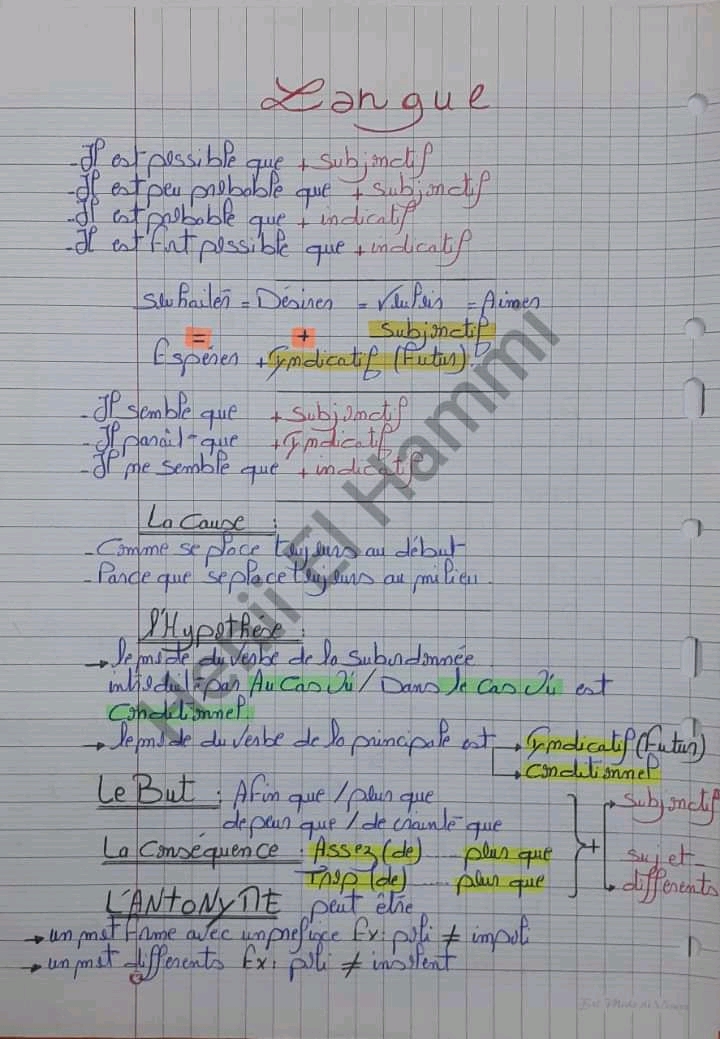 Langue
- Il est possible que + subjonctif
- Il est peu probable que + subjonctif
- Il est probable que + indicatif
- Il est fort possible que + indicatif
Souhaiter = Désirer = Vouloir = Aimer
= + Subjonctif
Espérer + Indicatif (Futur).
- Il semble que + Subjonctif
- Il paraît-que + Indicatif
- Il me semble que + indicatif
La Cause :
- Comme se place toujours au début
- Parce que se place toujours au milieu.
l'Hypothèse :
→ le mode du verbe de la subordonnée
introduit par Au Cas Où / Dans le Cas Où est
Conditionnel.
→ le mode du verbe de la principale est → Indicatif (Futur)
→ Conditionnel
Le But : Afin que / pour que
de peur que / de crainte que
+ → Subjonctif
La Conséquence : Assez (de) ... pour que
Trop (de) ... pour que
→ sujet differents
L'ANTONYME peut être
→ un mot formé avec un prefixe Ex: poli ≠ impoli
→ un mot differents Ex: poli ≠ insolent
El Hammi